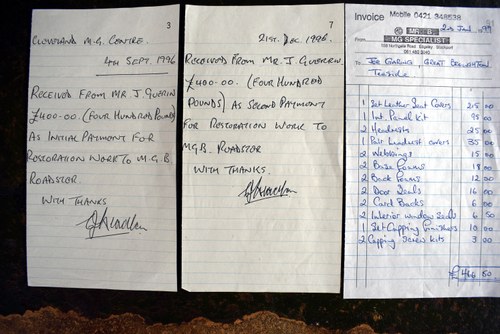 3
CLEVELAND M.G. CENTRE.
4TH SEPT. 1996
RECEIVED FROM MR. J GUERIN
£400.00. (FOUR HUNDRED POUNDS)
AS INITIAL PAYMENT FOR
RESTORATION WORK TO M.G.B.
ROADSTOR.
WITH THANKS
7
21ST. DEC. 1996.
RECEIVED FROM MR. J. GUERRIN.
£400.00. (FOUR HUNDRED
POUNDS) AS SECOND PAYMENT
FOR RESTORATION WORK TO
MGB. ROADSTOR
WITH THANKS.
Invoice Mobile 0421 348538
MR. B
From MG SPECIALIST
To
GREAT BROUGHTON
Teeside
1 Set Leather Seat Covers 215.00
1 Int Panel kit 95 00
2 Headrests 25 00
1 Pair Headrest covers 35 00
2 Webbings 15 00
2 Base Foams 18 00
2 Back Foams 12 00
2 Door Seals 16 00
2 Card Backs 6 00
2 Interior window Seals 6 50
1 Set Capping Finishers 10 00
2 Capping Screw kits 3 00
£466.50